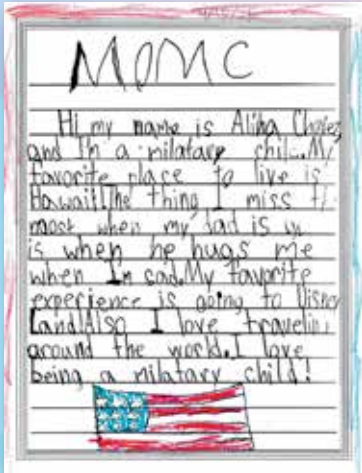 MOMC
Hi my name is Aliha Chavez
and I'm a milatary chil. My
favorite place to live is
Hawaii! The thing I miss
most when my dad is
is when he hugs me
when Im sad. My favorite
experience is going to Disney
Land! Also I love traveling
around the world. I love
being a milatary child!